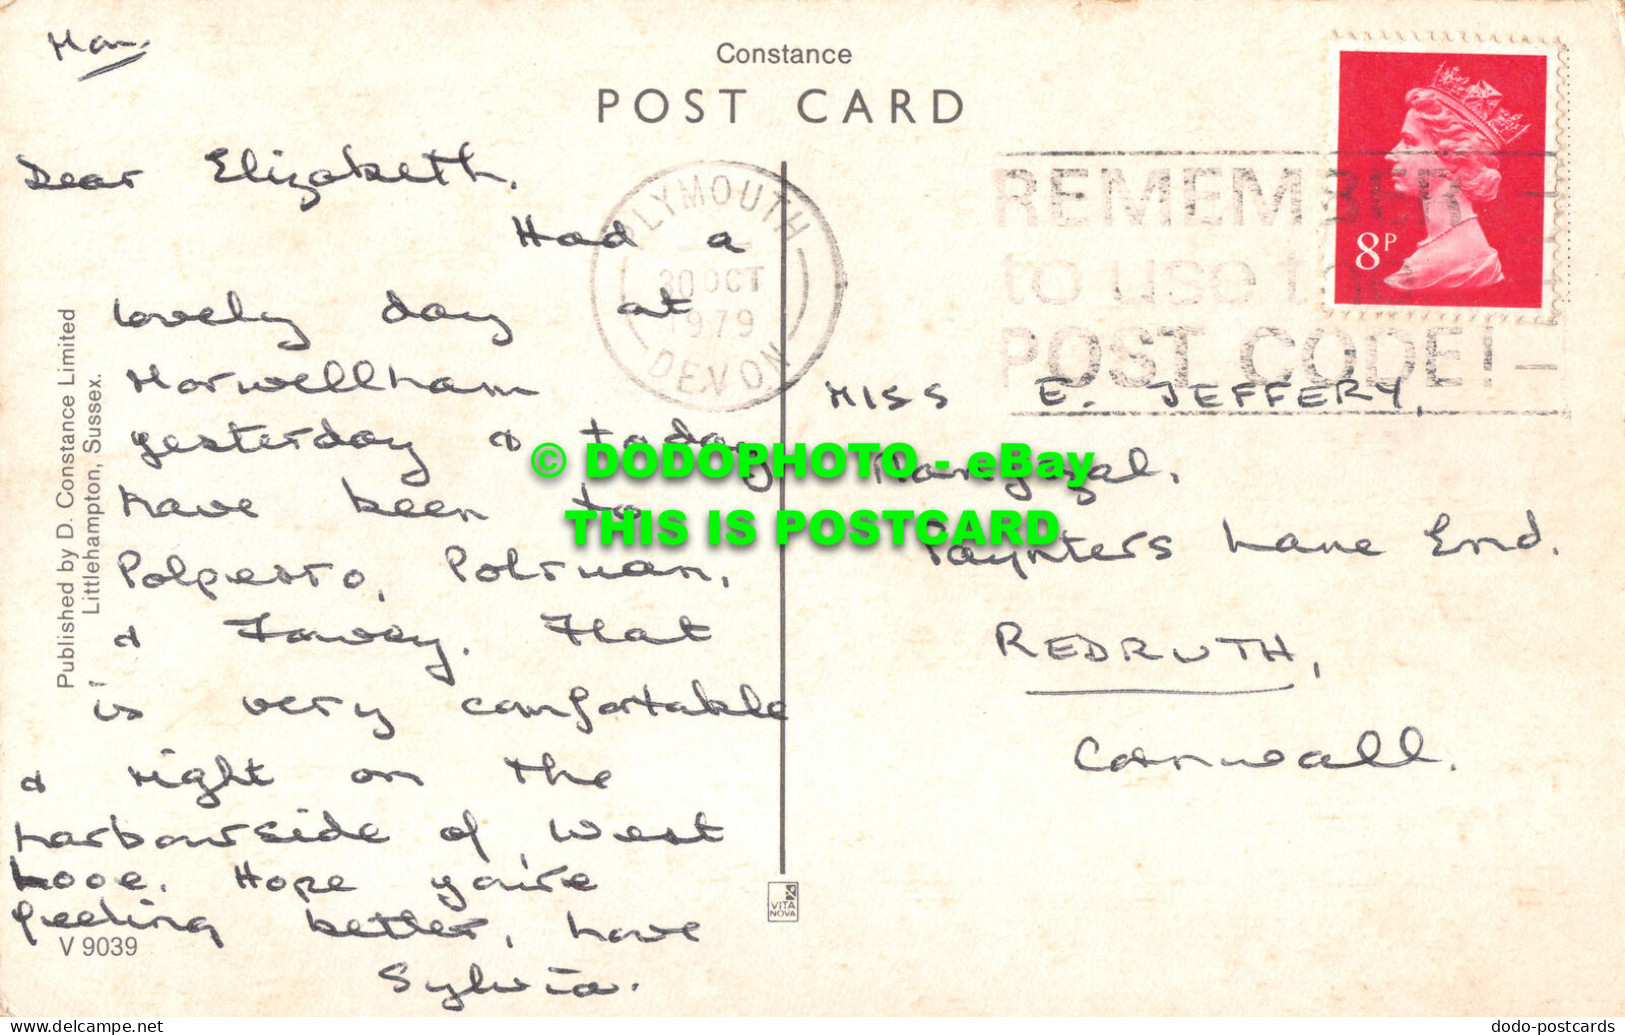 Mon.
Constance
POST CARD
Dear Elizabeth,
Had a
lovely day at
Morwellham
yesterday & today
have been to
Polperro, Polruan,
& Fowey. Flat
is very comfortable
& right on the
harbourside of West
Looe. Hope you're
feeling better, love
Sylvia.
V 9039
Published by D. Constance Limited
Littlehampton, Sussex.
PLYMOUTH
30 OCT
1979
DEVON
REMEMBER
to use the
POST CODE!
8P
MISS E. JEFFERY,
Paynters Lane End.
REDRUTH,
Cornwall.
VITA
NOVA
© DODOPHOTO - eBay
THIS IS POSTCARD
delcampe.net
dodo-postcards